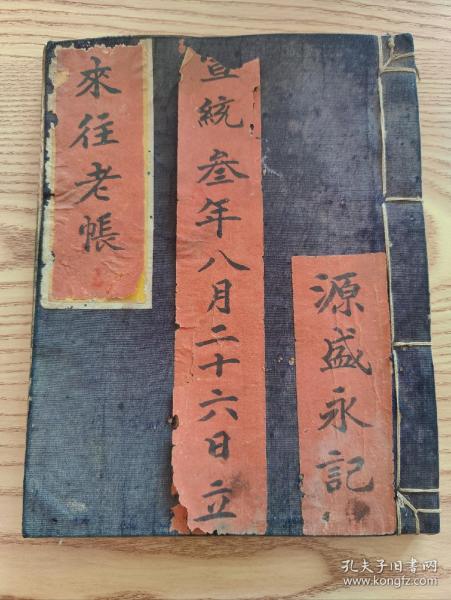 源盛永記
宣統叁年八月二十六日立
來往老帳
孔夫子旧书网
www.kongfz.com